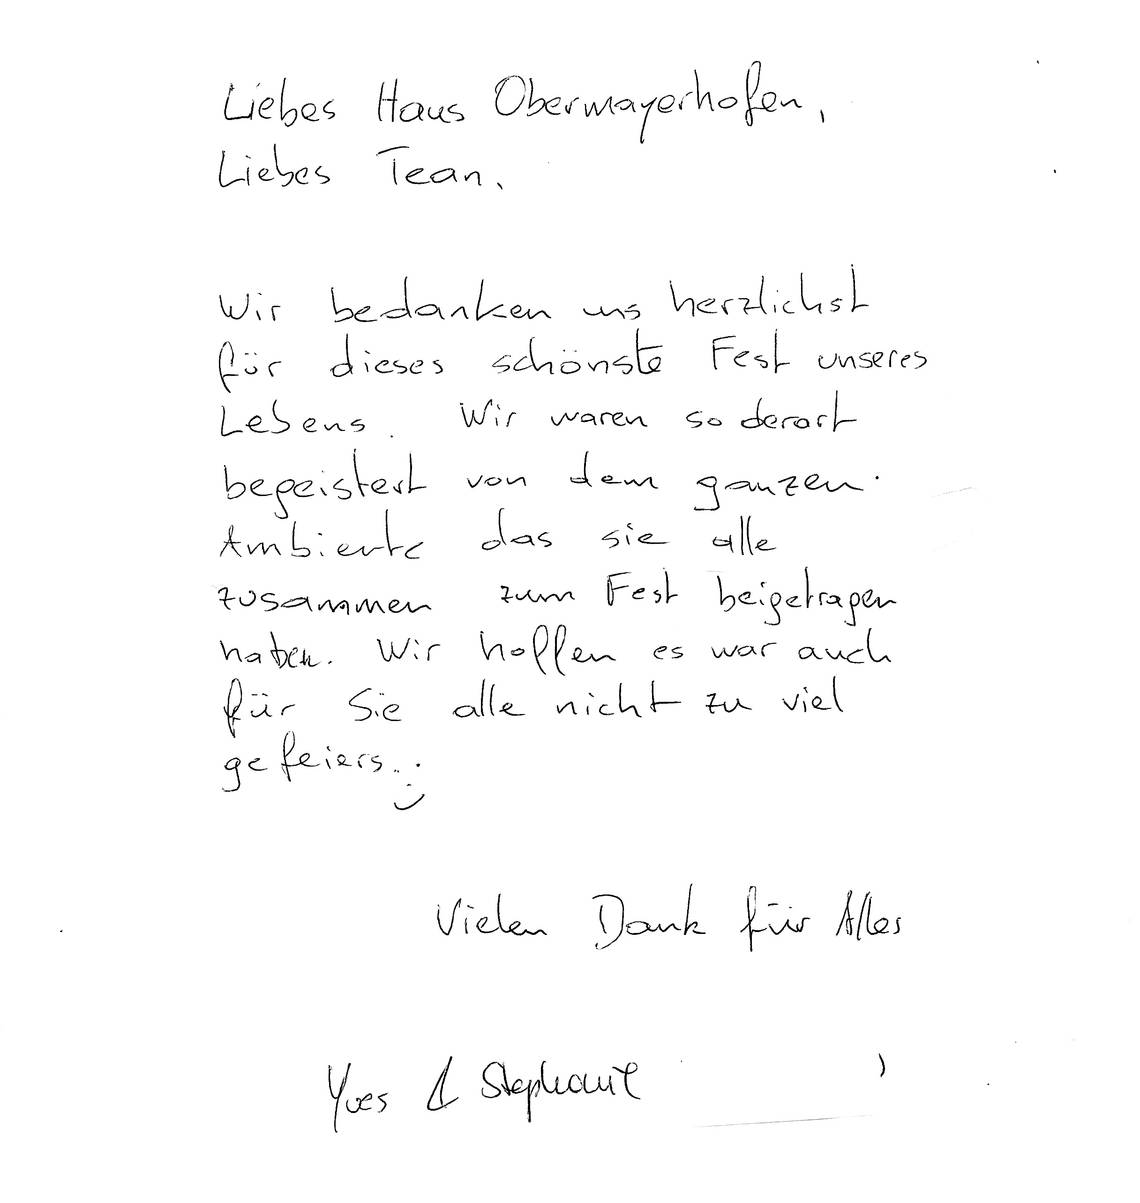 Liebes Haus Obermayerhofen,
Liebes Team,
Wir bedanken uns herzlichst
für dieses schönste Fest unseres
Lebens. Wir waren so derart
begeistert von dem ganzen
Ambiente das sie alle
zusammen zum Fest beigetragen
haben. Wir hoffen es war auch
für Sie alle nicht zu viel
gefeiers.. :)
Vielen Dank für Alles
Yves & Stephanie